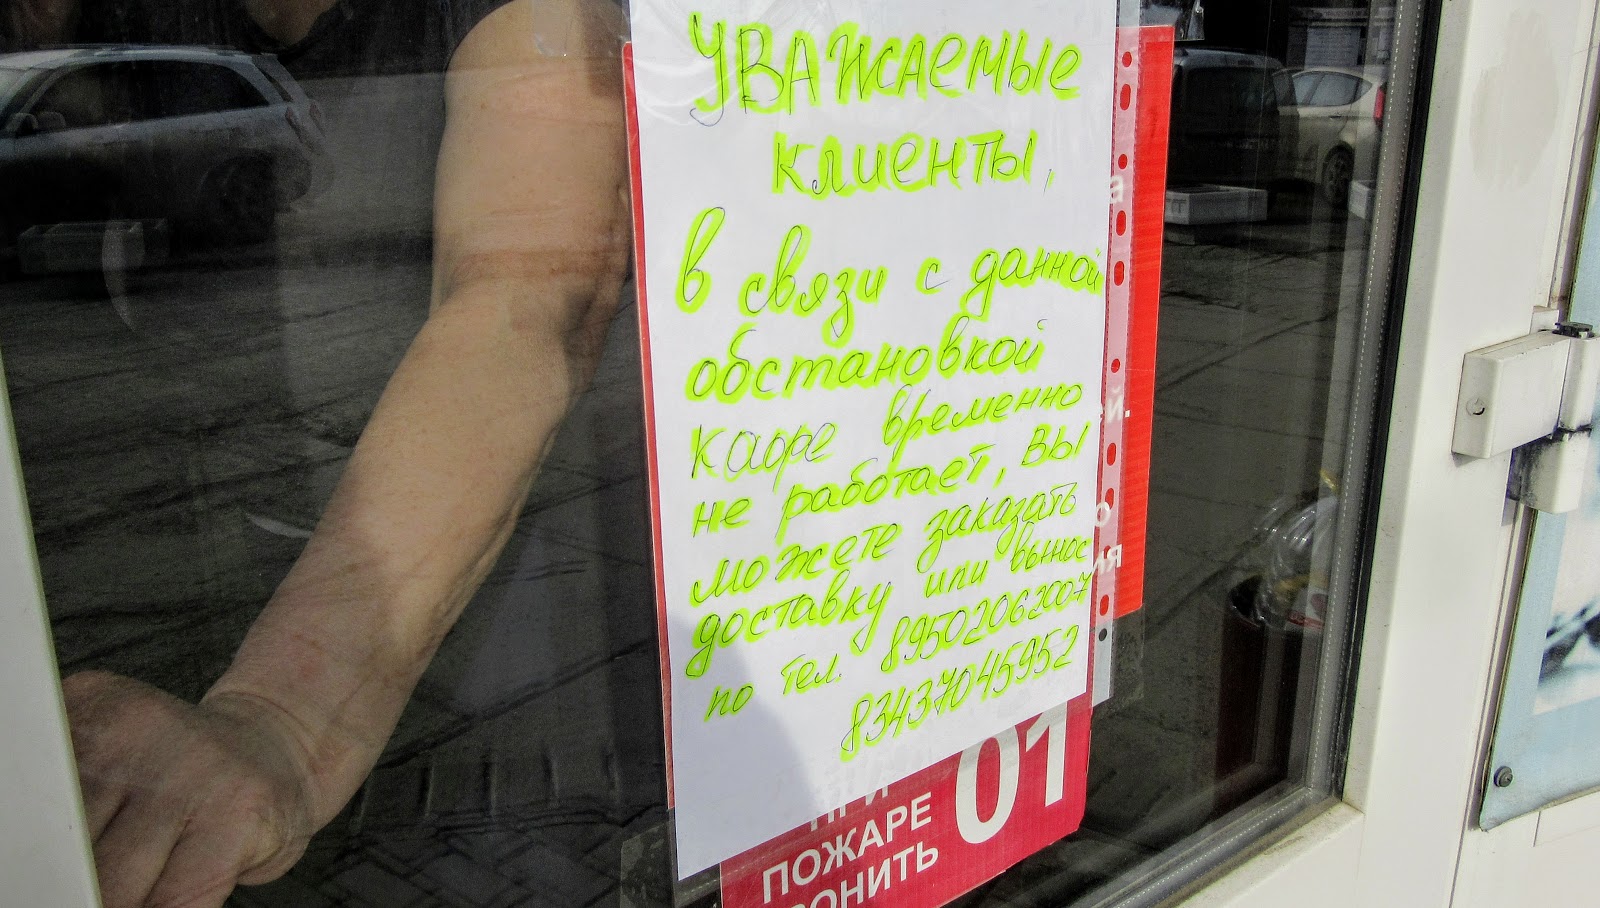 Уважаемые
клиенты,
в связи с данной
обстановкой
кафе временно
не работает, вы
можете заказать
доставку или вынос
по тел. 89502062007
83437045952
ПРИ
ПОЖАРЕ
ЗВОНИТЬ
01